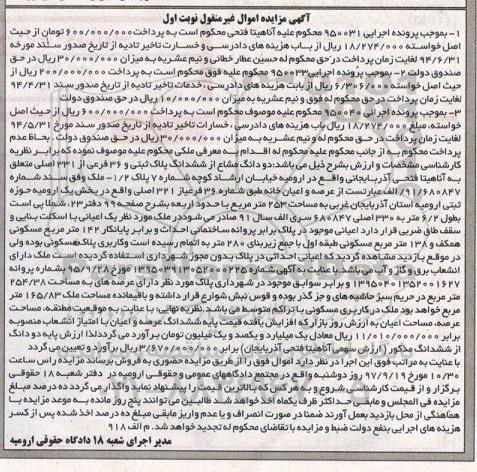 آگهی مزایده اموال غیرمنقول نوبت اول
۱- بموجب پرونده اجرایی ۹۵۰۰۳۱ محکوم علیه آناهیتا فتحی محکوم است به پرداخت ۶۰۰/۰۰۰/۰۰۰ تومان از حیث
اصل خواسته ۱۸/۲۷۴/۰۰۰ ریال از باب هزینه های دادرسی و خسارت تاخیر تادیه از تاریخ صدور سند مورخه
۹۴/۶/۳۱ لغایت زمان پرداخت در حق محکوم له حسین عطار خطانی و نیم عشریه به میزان ۳۰/۰۰۰/۰۰۰ ریال در حق
صندوق دولت ۲- بموجب پرونده اجرایی ۹۵۰۰۳۳ محکوم علیه فوق محکوم است به پرداخت ۲۰۰/۰۰۰/۰۰۰ ریال از
حیث اصل خواسته و ۶/۳۰۶/۰۰۰ ریال از بابت هزینه های دادرسی - خدمات تاخیر تادیه از تاریخ صدور سند ۹۴/۴/۳۱
لغایت زمان پرداخت در حق محکوم له فوق و نیم عشریه به میزان ۱۰/۰۰۰/۰۰۰ ریال در حق صندوق دولت
۳- بموجب پرونده اجرایی محکوم علیه موصوف محکوم است به پرداخت ۶۰۰/۰۰۰/۰۰۰ ریال از حیث اصل
خواسته، مبلغ ۱۸/۲۷۴/۰۰۰ ریال باب هزینه های دادرسی، خسارات تاخیر تادیه از تاریخ صدور سند مورخ ۹۴/۵/۳۱
لغایت زمان پرداخت در حق محکوم له و نیم عشریه به میزان ۳۰/۰۰۰/۰۰۰ ریال در حق صندوق دولت. بلحاظ عدم
پرداخت محکوم به از جانب محکوم علیه محکوم له اقدام به معرفی ملکی محکوم علیه موصوف نموده که برابر نظریه
کارشناسی مشخصات و ارزش بشرح ذیل می باشد: دو دانگ مشاع از ششدانگ پلاک ثبتی و ۳۶ فرعی از ۳۳۱ اصلی متعلق
به آناهیتا فتحی آذربایجانی واقع در ارومیه خیابان ارشاد کوچه شماره ۷ پلاک ۱/۲- ملک وفق سند شماره
۶۸۰۸۴۷/ ۹۱ الف عبارتست از عرصه و اعیان خانه طبق شماره ۳۶ فرعی از ۳۲۱ اصلی واقع در بخش یک ارومیه حوزه
ثبتی ارومیه استان آذربایجان غربی به مساحت ۲۵۳ متر مربع با حدود اربعه بشرح صفحه ۹۹ دفتر ۲۳، شمالا پی است
بطول ۶/۲ متر به ۳۳۰ اصلی ۶۸۰۸۴۷ سری الف سال ۹۱ صادر می شود در ملک مورد نظر یک اعیانی با اسکلت بنایی و
سقف طاق ضربی قرار دارد اعیانی موجود در پلاک برابر پروانه ساختمانی احداث و برابر پایانکار ۱۴۲ متر مربع مسکونی
همکف و ۱۳۸ متر مربع مسکونی طبقه اول با جمع زیربنای ۲۸۰ متر به اتمام رسیده است وکاربری پلاک مسکونی بوده ولی
در موقع بازدید مشاهده گردید که اعیانی احداثی در پلاک بدون مجوز شهرداری استفاده گردیده است ملک دارای
انشعاب برق و گاز و آب می باشد با عنایت به آگهی شماره مورخ ۹۵/۹/۲۸ شماره پروانه
و برابر سوابق موجود در شهرداری پلاک مورد نظر دارای عرصه های به مساحت ۲۵۴/۳۸
متر مربع در حریم سبز حاشیه های و جز گذر بوده و قوس نبش شوارع قرار داشته و باقیمانده مساحت ملک ۱۶۵/۸۳ متر
مربع خواهد بود ملک در کاربری مسکونی با تراکم متوسط می باشد نظریه نهایی: با عنایت به موقعیت منطقه، مساحت
عرصه، مساحت اعیان به ارزش روز بازار که افزایش یافته قیمت پایه ششدانگ عرصه و اعیان با امتیاز انشعاب منصوبه
برابر ۱۱/۰۱۰/۰۰۰/۰۰۰ ریال معادل یک میلیارد و یکصد و یک میلیون تومان برآورد می گردد لذا ارزش پایه دو دانگ
از ششدانگ مذکور (ارزش سهمی آناهیتا فتحی آذربایجان) برابر ۳/۶۷۰/۰۰۰/۰۰۰ ریال برآورد و تعیین می گردد
با عنایت به مراتب فوق این اجرا در نظر دارد اموال فوق را از طریق مزایده حضوری به فروش برساند مزایده راس ساعت
۱۰/۳۰ مورخ ۹۷/۹/۱۹ روز دوشنبه واقع در مجتمع دادگاههای عمومی و حقوقی ارومیه در دفتر شعبه ۱۸ حقوقی
برگزار و از قیمت کارشناسی شروع و به هر کس که بالاترین قیمت را پیشنهاد نماید واگذار می گردد ده درصد مبلغ
مزایده فی المجلس و مابقی حداکثر ظرف یکماه اخذ خواهد شد طالبین می توانند پنج روز مانده به موعد مزایده با
هماهنگی از محل بازدید بعمل آورند ضمنا در صورت انصراف و یا عدم واریز مابقی مبلغ ده درصد اخذ شده پس از کسر
هزینه های اجرایی بنفع دولت ضبط و مزایده با تقاضای محکوم له تجدید خواهد شد. م الف ۹۱۸
مدیر اجرای شعبه ۱۸ دادگاه حقوقی ارومیه